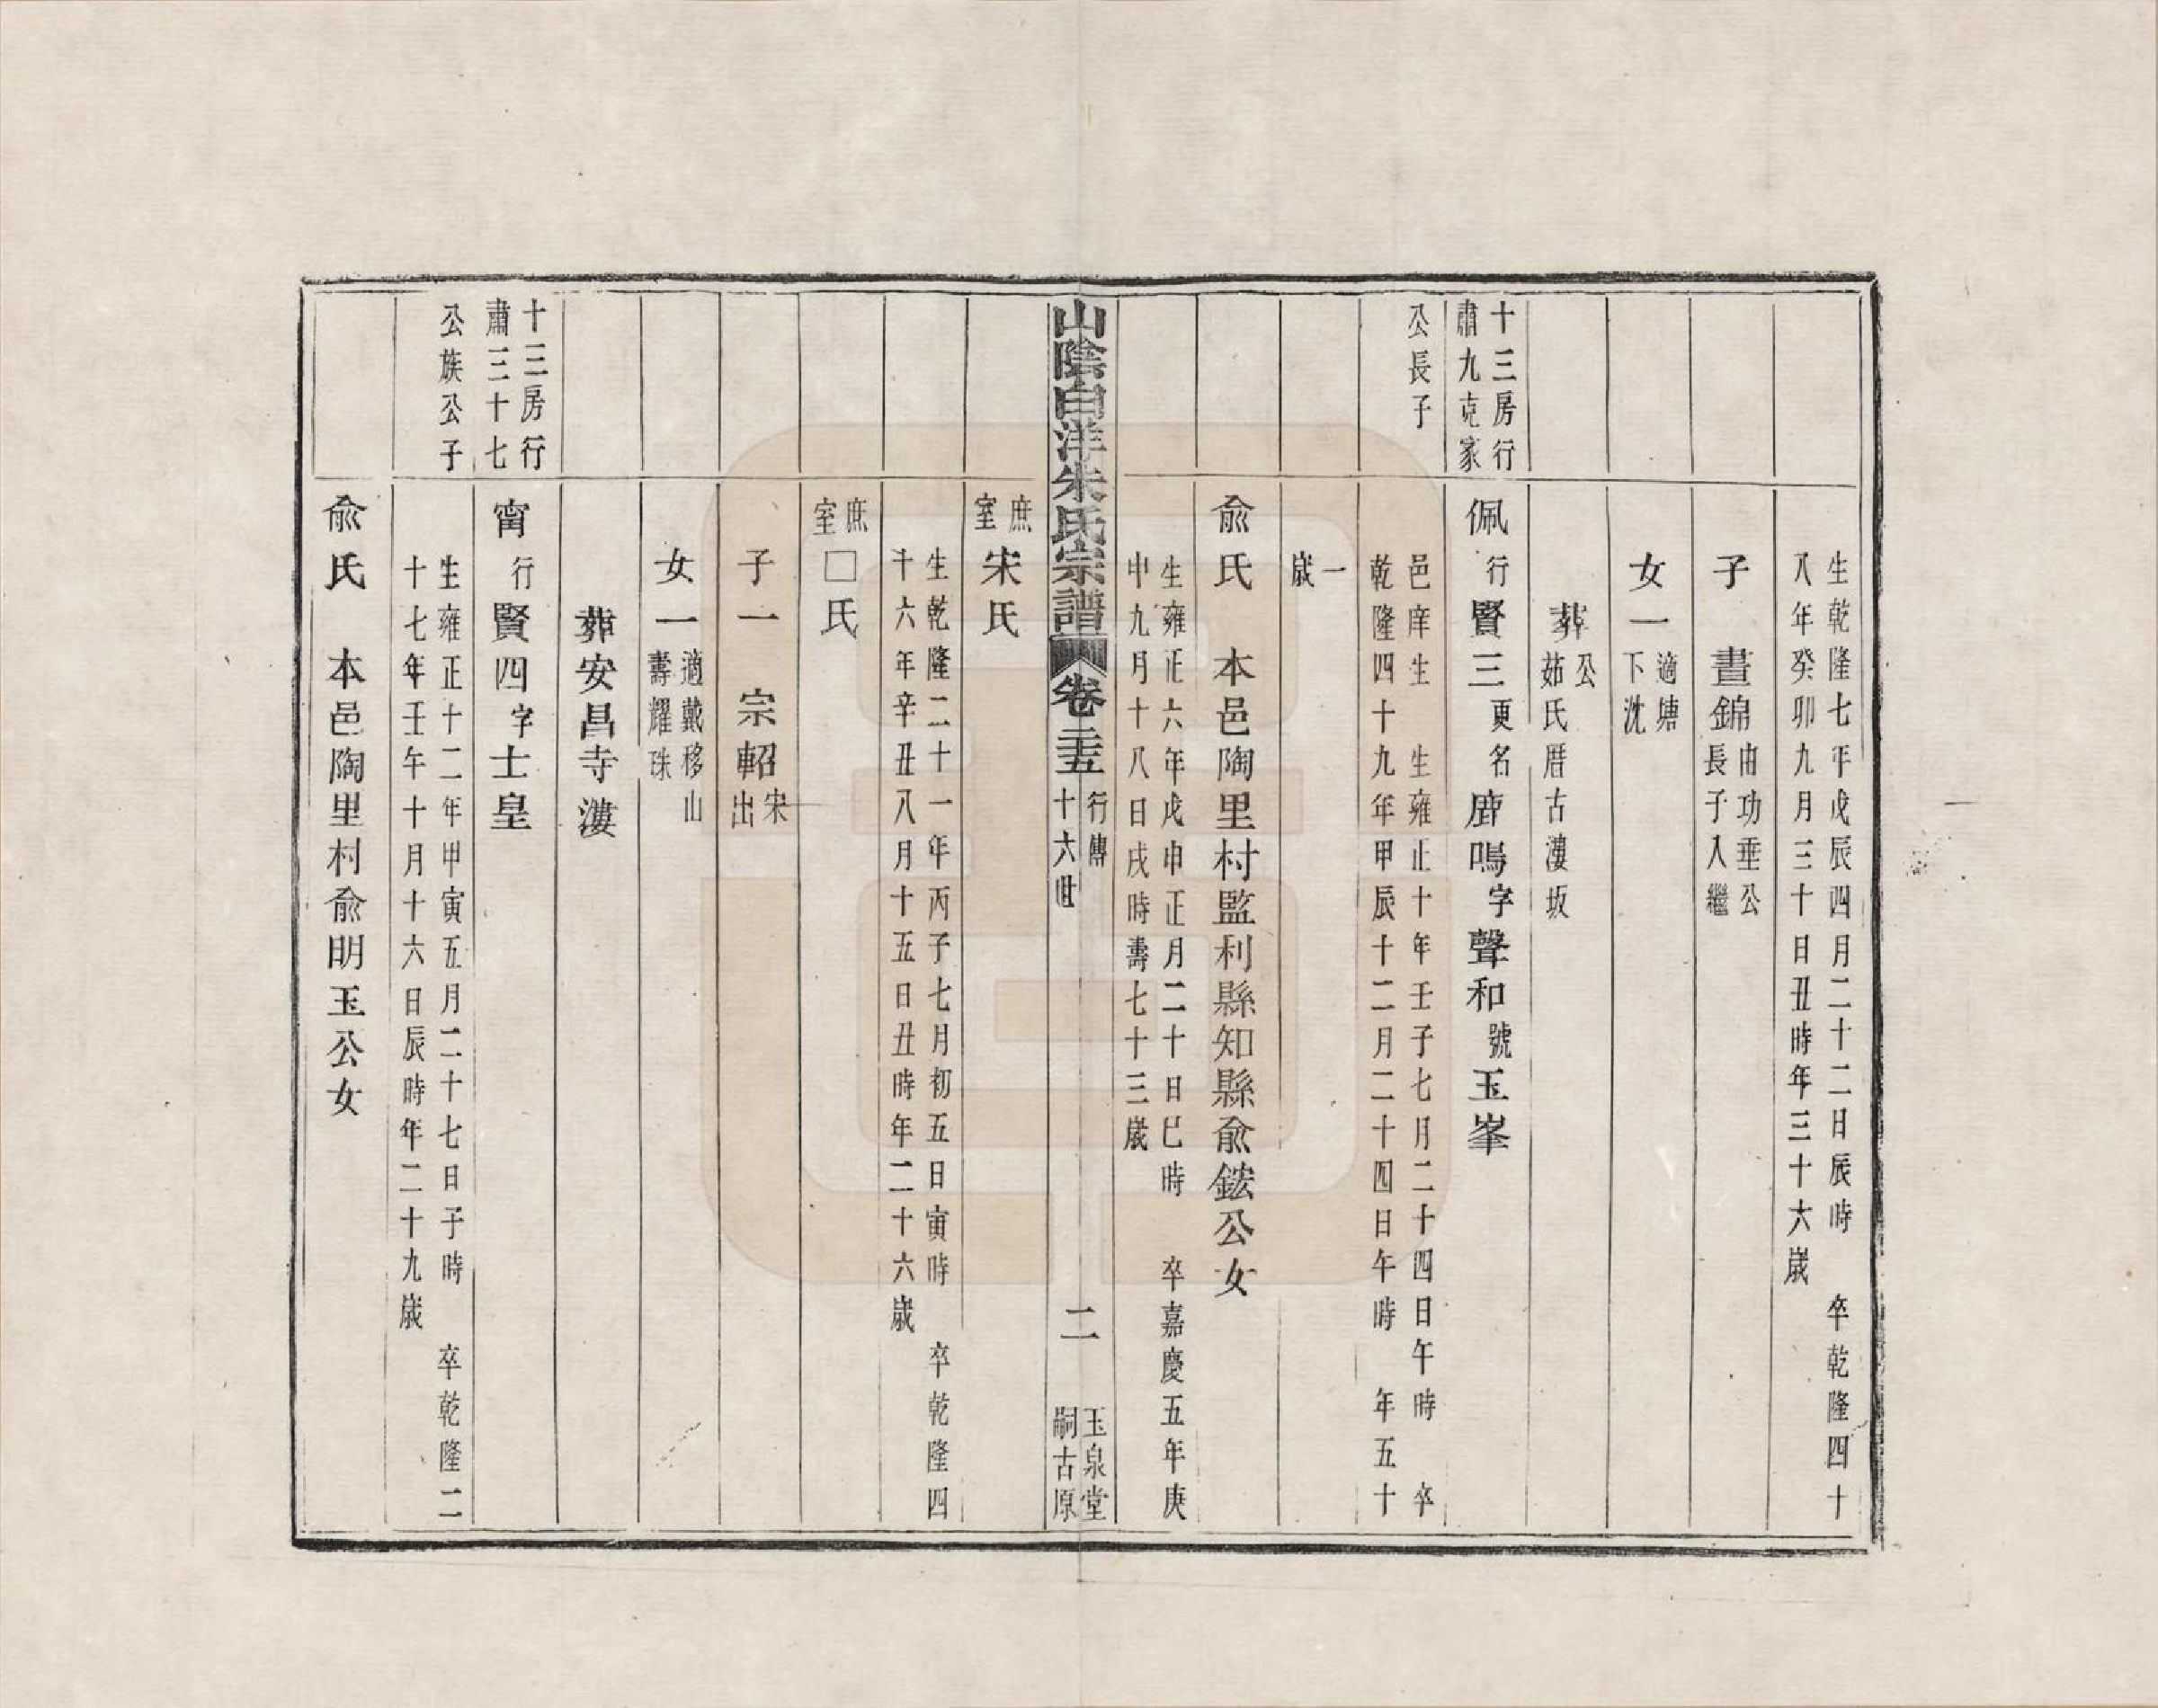 生乾隆七年戊辰四月二十二日辰時　卒乾隆四十
八年癸卯九月三十日丑時年三十六歲
子　晝錦由功垂公
長子入繼
女一適塘
下沈
葬公
茹氏厝古漊坂
十三房行
肅九克家
公長子
佩行賢三更名鹿鳴字聲和號玉峯
邑庠生　生雍正十年壬子七月二十四日午時　卒
乾隆四十九年甲辰十二月二十四日午時　年五十
一
歲
俞氏　本邑陶里村監利縣知縣俞鋐公女
生雍正六年戊申正月二十日巳時　卒嘉慶五年庚
申九月十八日戌時壽七十三歲
山陰白洋朱氏宗譜
卷二十五
行傳
十六世
二
玉泉堂
嗣古原
庶
室
宋氏
生乾隆二十一年丙子七月初五日寅時　卒乾隆四
十六年辛丑八月十五日丑時年二十六歲
庶
室
□氏
子一　宗軺宋
出
女一適戴移山
壽耀珠
葬安昌寺漊
十三房行
肅三十七
公族公子
甯行賢四字士皇
生雍正十二年甲寅五月二十七日子時　卒乾隆二
十七年壬午十月十六日辰時年二十九歲
俞氏　本邑陶里村俞明玉公女